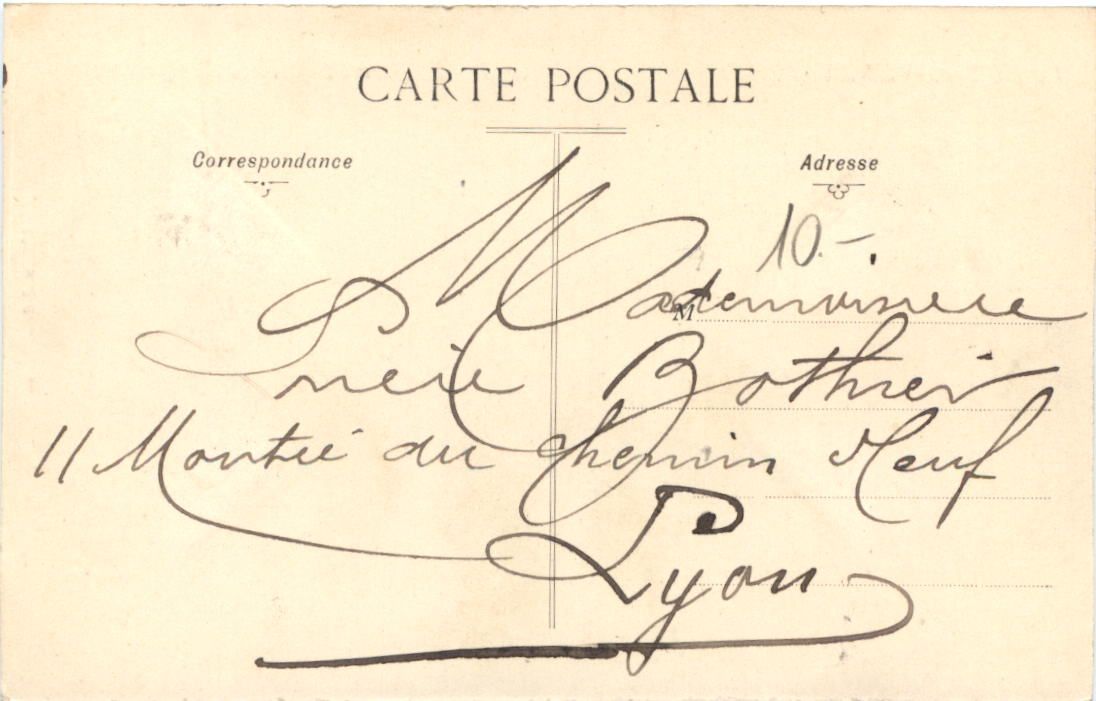 CARTE POSTALE
Correspondance
Adresse
10.-.
M
Mademoiselle
Lucie Bothier
11 Montée du Chemin Neuf
Lyon